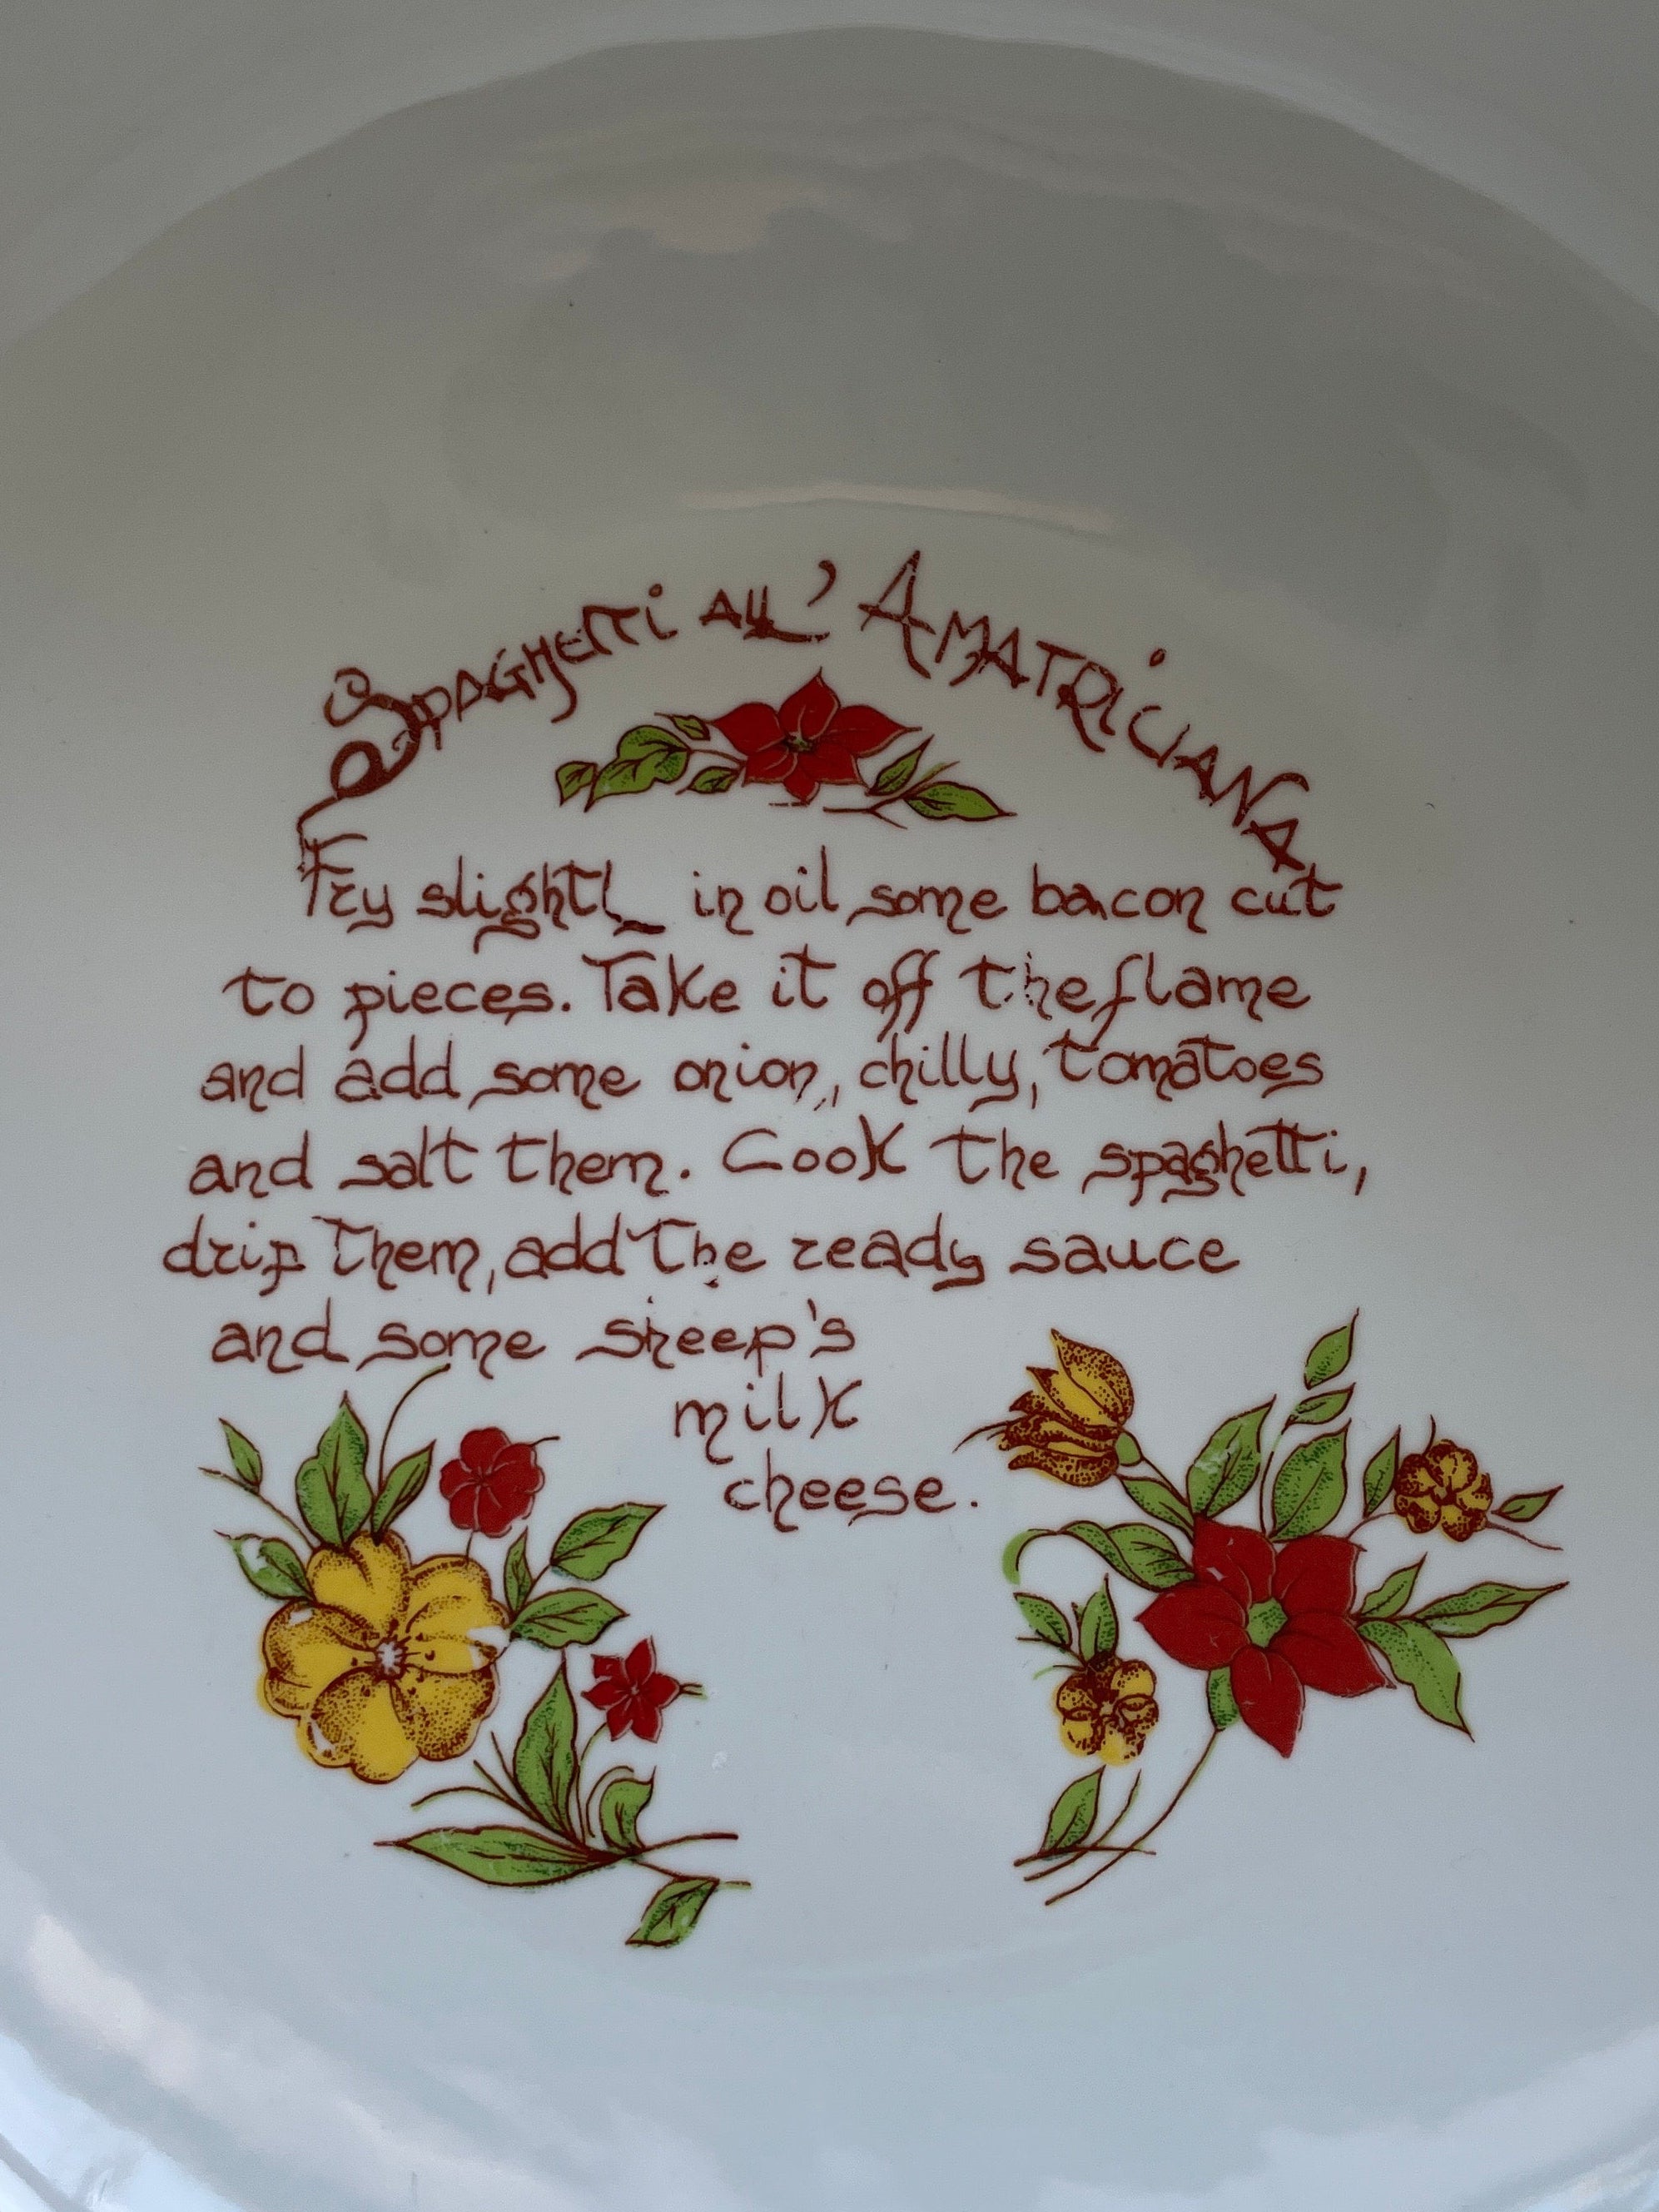 Spaghetti all' Amatriciana
Fry slightl in oil some bacon cut
to pieces. Take it off the flame
and add some onion, chilly, tomatoes
and salt them. Cook the spaghetti,
drip them, add the ready sauce
and some sheep's
milk
cheese.